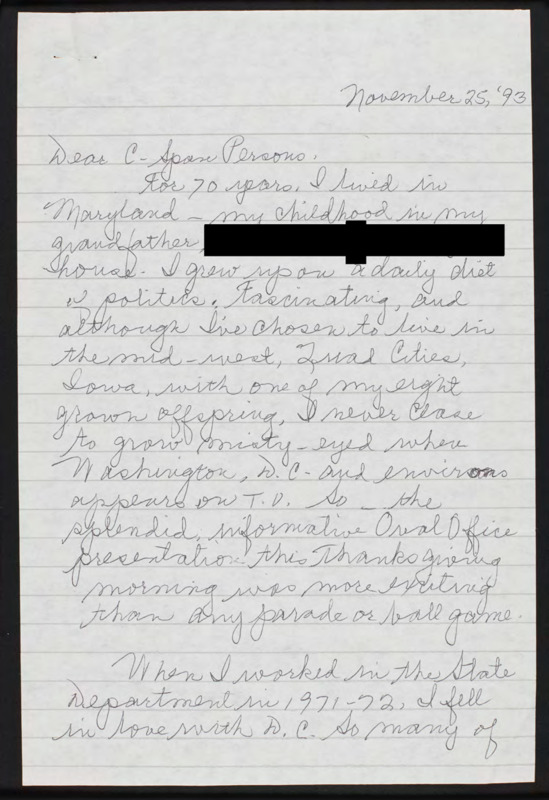 November 25, '93
Dear C-Span Persons.
For 70 years, I lived in
Maryland - my childhood in my
grandfather
house. I grew up on a daily diet
politics. Fascinating, and
although I've chosen to live in
the mid-west, Quad Cities,
Iowa, with one of my eight
grown offspring, I never cease
to grow misty-eyed when
Washington, D.C. and environs
appears on T.V. So - the
splendid, informative Oval Office
presentation this Thanksgiving
morning was more exciting
than any parade or ball game.
When I worked in the State
Department in 1971-72, I fell
in love with D.C. So many of